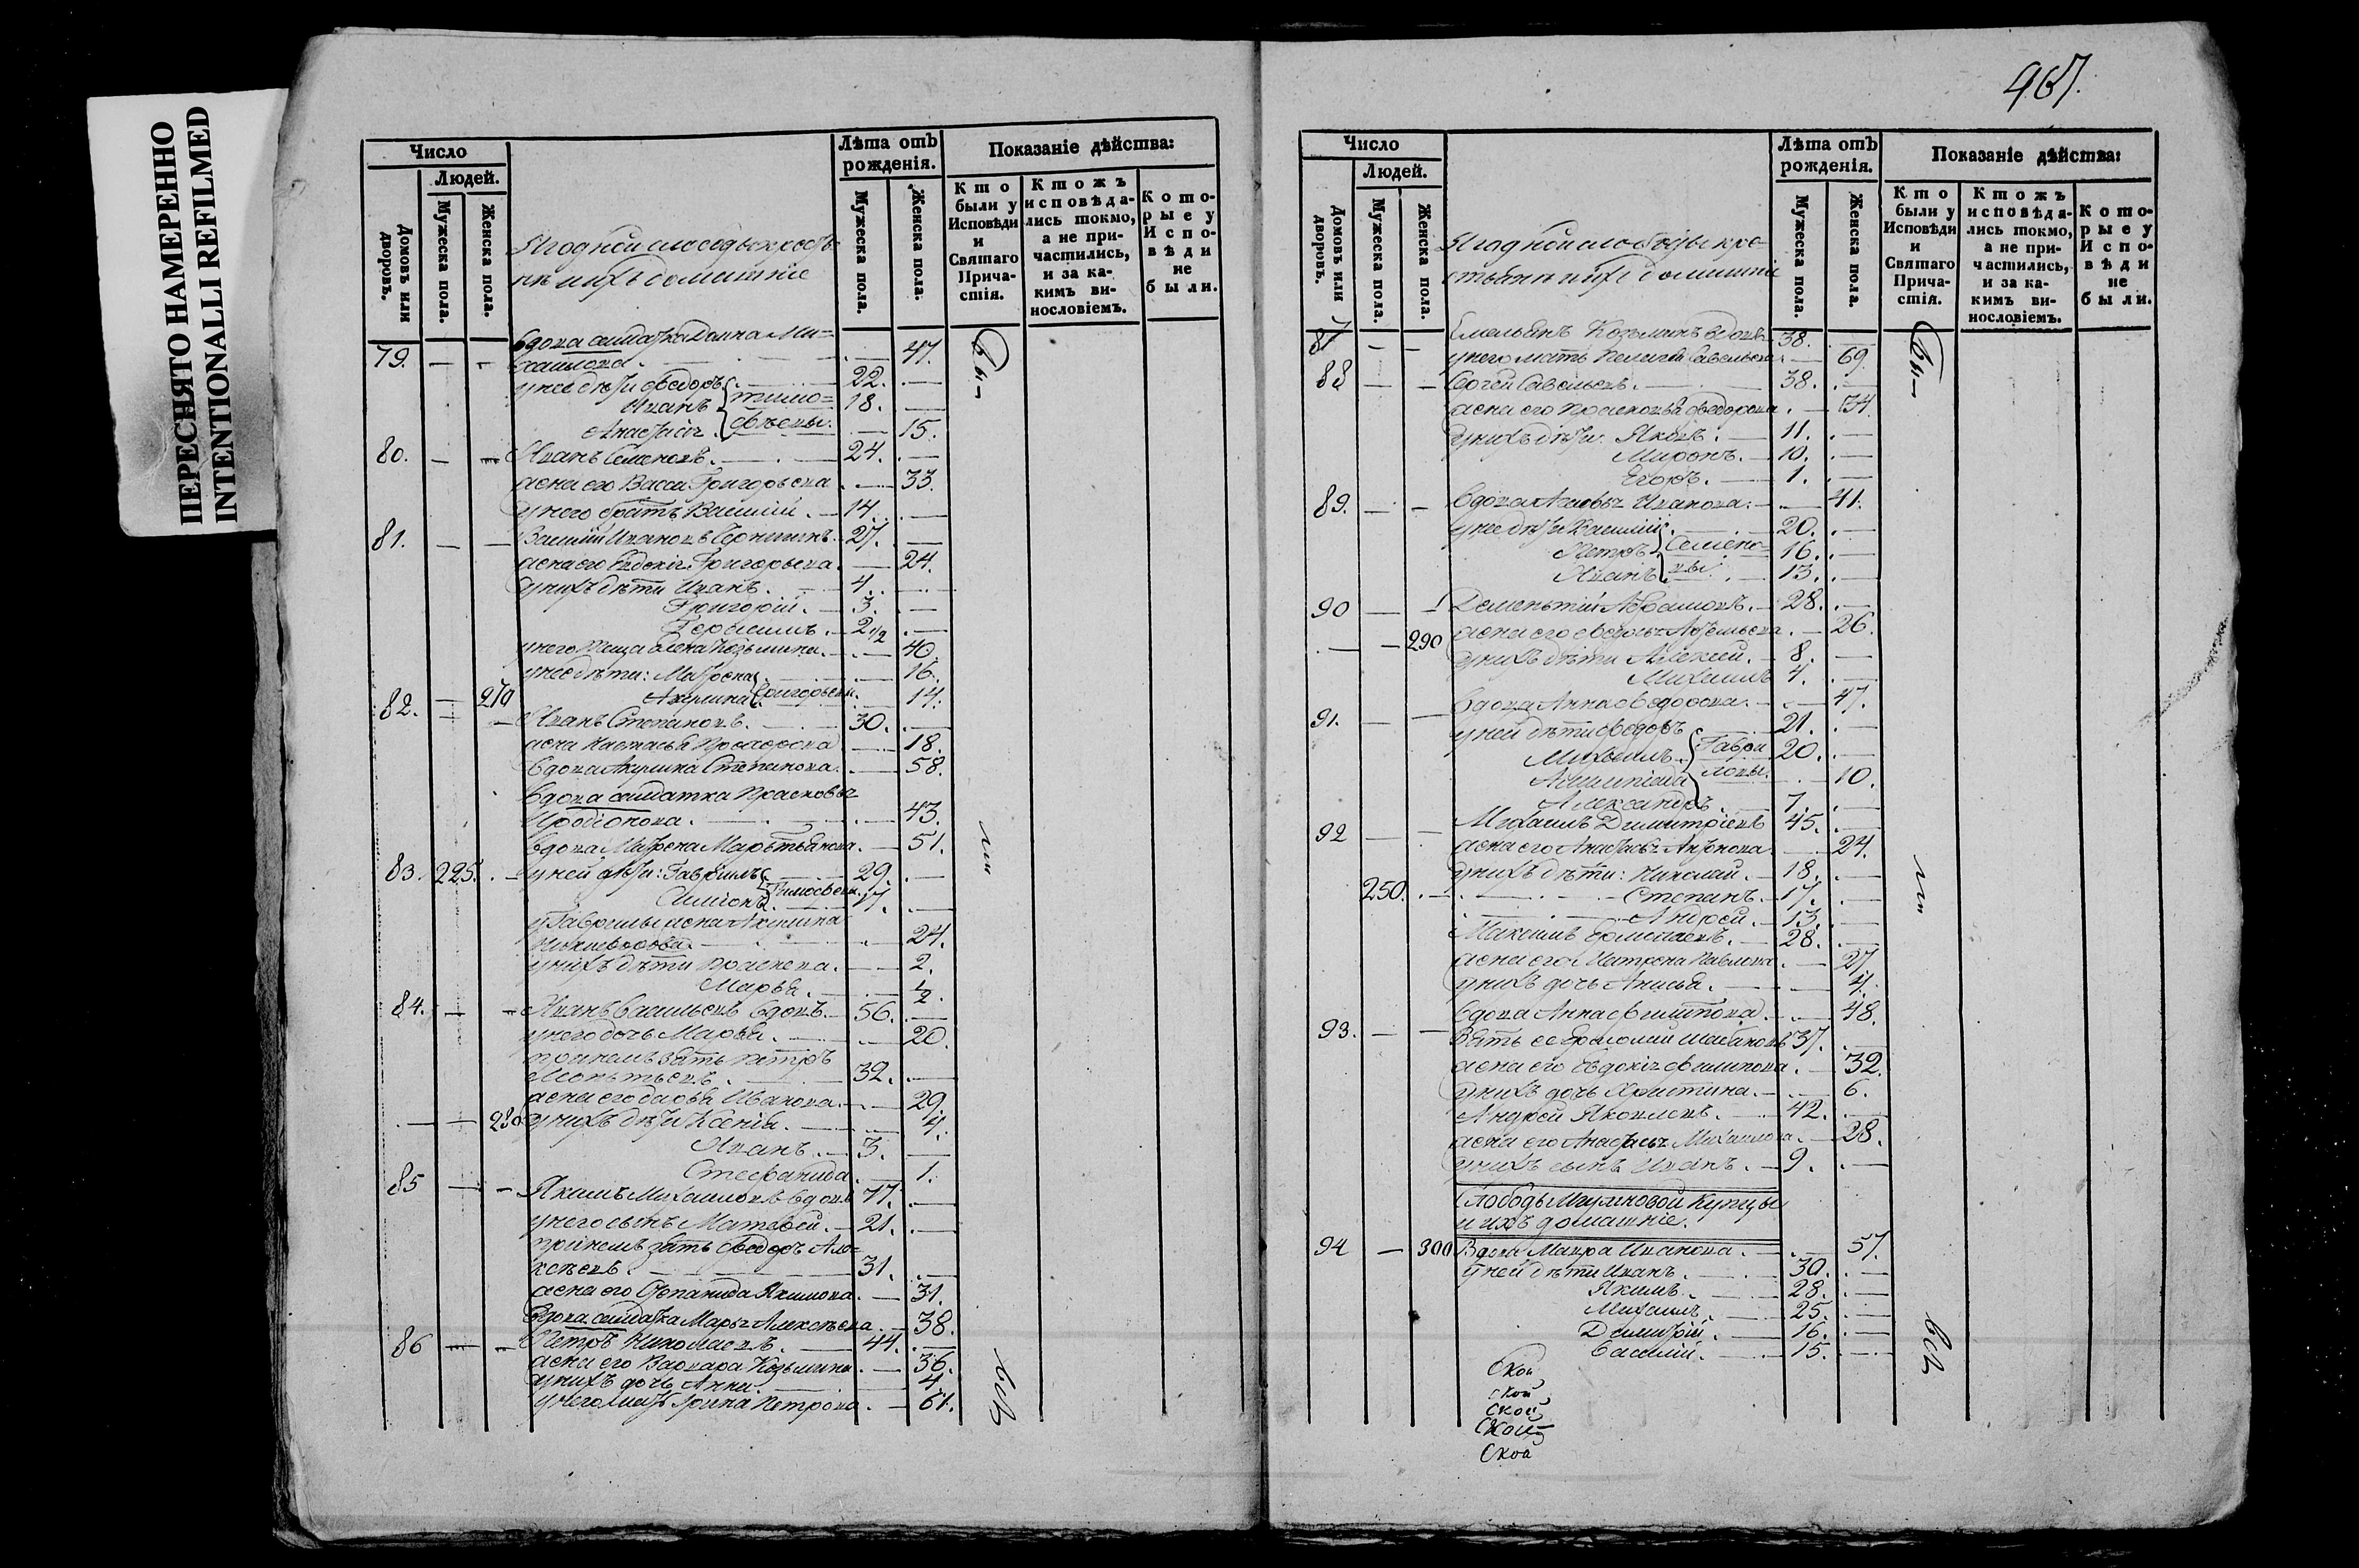 ПЕРЕСНЯТО НАМЕРЕННО
INTENTIONALLI REFILMED
Число
Людей.
Домовъ или дворовъ.
Мужеска пола.
Женска пола.
Ягодной слободы
ихъ домашніе
Лѣта отъ рожденія.
Мужеска пола.
Женска пола.
Показаніе дѣйства:
Кто были у Исповѣди и Святаго Причастія.
Ктожъ исповѣдались токмо, а не причастились, и за какимъ винословіемъ.
Которые у Исповѣди не были.
79. вдова солдатка Домна Ми=
хаилова. 47.
у нее дѣти Ѳедоръ 22.
Иванъ 18. Тимо=
Анастасія ѳѣевы. 15.
80. Иванъ Семеновъ. 24.
жена его Васса Григорьева 33.
у него братъ Василий. 14.
81. Василий Ивановъ 27.
жена его Евдокія Григорьева. 24.
у нихъ дѣти Иванъ. 4.
Григорій. 3.
Герасимъ. 2 1/2
у него теща Елена Козьмина. 40.
у нее дѣти: Матрена 16.
270 Акулина Григорьевы. 14.
82. Иванъ Степановъ. 30.
жена Настасья Прохорова 18.
вдова Акулина Степанова. 58.
вдова солдатка Прасковья
Иродіонова. 43.
вдова Матрена Мартьянова. 51.
83. 225. у ней дѣти: Гаврилъ 29.
Симіонъ Тимоѳеевы. 17.
у Гаврилы жена Акулина
24.
у нихъ дѣти Прасковья. 2.
Марья. 1/2.
84. Иванъ Васильевъ вдовъ. 56.
у него дочь Марья. 20.
при немъ зять Петръ
32.
жена его Дарья Иванова. 29.
280 у нихъ дѣти Ксенія. 4.
Иванъ. 3.
Стефанида. 1.
85 Якимъ Михаиловъ вдовъ 77.
у него сынъ Матвѣй. 21.
при немъ зять Ѳедоръ Але=
ксѣевъ. 31.
жена его Степанида Якимова. 31.
вдова солдатка Марья Алексѣева. 38.
86 Петръ Николаевъ. 44.
жена его Варвара Козьмина. 36.
у нихъ дочь Анна. 4.
у него мать Ирина Петрова. 61.
Бы-
ли
всѣ
967.
Число
Людей.
Домовъ или дворовъ.
Мужеска пола.
Женска пола.
Ягодной слободы кре=
стьяне и ихъ домашніе
Лѣта отъ рожденія.
Мужеска пола.
Женска пола.
Показаніе дѣйства:
Кто были у Исповѣди и Святаго Причастія.
Ктожъ исповѣдались токмо, а не причастились, и за какимъ винословіемъ.
Которые у Исповѣди не были.
87 Емельянъ Козьминъ вдовъ 38.
у него мать Пелагея Савельева. 69.
88 Сергей Савельевъ. 38.
жена его Прасковья Ѳедорова. 34.
у нихъ дѣти: Яковъ. 11.
Миронъ. 10.
Егоръ. 1.
89. вдова Иванова. 41.
у нее дѣти Василий 20.
Петръ Семено= 16.
Иванъ вы. 13.
90 Дементий Абрамовъ. 28.
290 жена его Ѳедосья 26.
у нихъ дѣти Алексѣй. 8.
Михаилъ 4.
91. вдова Анна Ѳедорова. 47.
у ней дѣти Ѳедоръ 21.
Михаилъ Гаври 20.
ловы. 10.
Александръ 7.
92 Михаилъ Димитріевъ 45.
жена его Анастасья Антонова. 24.
у нихъ дѣти: Николай. 18.
250. Степанъ. 17.
Андрей. 13.
Максимъ Ермолаевъ. 28.
жена его Матрена Павлова. 27
у нихъ дочь Анисья. 4.
вдова Анна Филиппова. 48.
93. Зять ее 37.
жена его Евдокія Филиппова. 32.
у нихъ дочь Христина. 6.
Андрей Яковлевъ. 42.
жена его Анастасья Михаилова. 28.
у нихъ сынъ Иванъ. 9.
Слободы Игумновой Купцы
и ихъ домашніе.
94 300 Вдова Мавра Иванова. 57.
у ней дѣти Иванъ. 30.
Якимъ. 28.
Михаилъ. 25.
Димитрій. 16.
Василій. 15.
Бы-
ли
всѣ
Ской
ской
Ской
Ской
Ской